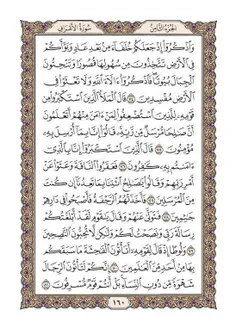 الجُزْءُ الثَّامِنُ
سُورَةُ الأَعْرَافِ
وَٱذْكُرُوٓا۟ إِذْ جَعَلَكُمْ خُلَفَآءَ مِنۢ بَعْدِ عَادٍ وَبَوَّأَكُمْ
فِى ٱلْأَرْضِ تَتَّخِذُونَ مِن سُهُولِهَا قُصُورًا وَتَنْحِتُونَ
ٱلْجِبَالَ بُيُوتًا فَٱذْكُرُوٓا۟ ءَالَآءَ ٱللَّهِ وَلَا تَعْثَوْا۟ فِى
ٱلْأَرْضِ مُفْسِدِينَ ٧٤ قَالَ ٱلْمَلَأُ ٱلَّذِينَ ٱسْتَكْبَرُوا۟ مِن
قَوْمِهِۦ لِلَّذِينَ ٱسْتُضْعِفُوا۟ لِمَنْ ءَامَنَ مِنْهُمْ أَتَعْلَمُونَ
أَنَّ صَٰلِحًا مُّرْسَلٌ مِّن رَّبِّهِۦ قَالُوٓا۟ إِنَّا بِمَآ أُرْسِلَ بِهِۦ
مُؤْمِنُونَ ٧٥ قَالَ ٱلَّذِينَ ٱسْتَكْبَرُوٓا۟ إِنَّا بِٱلَّذِىٓ
ءَامَنتُم بِهِۦ كَٰفِرُونَ ٧٦ فَعَقَرُوا۟ ٱلنَّاقَةَ وَعَتَوْا۟ عَنْ
أَمْرِ رَبِّهِمْ وَقَالُوا۟ يَٰصَٰلِحُ ٱئْتِنَا بِمَا تَعِدُنَآ إِن كُنتَ
مِنَ ٱلْمُرْسَلِينَ ٧٧ فَأَخَذَتْهُمُ ٱلرَّجْفَةُ فَأَصْبَحُوا۟ فِى دَارِهِمْ
جَٰثِمِينَ ٧٨ فَتَوَلَّىٰ عَنْهُمْ وَقَالَ يَٰقَوْمِ لَقَدْ أَبْلَغْتُكُمْ
رِسَالَةَ رَبِّى وَنَصَحْتُ لَكُمْ وَلَٰكِن لَّا تُحِبُّونَ ٱلنَّٰصِحِينَ
٧٩ وَلُوطًا إِذْ قَالَ لِقَوْمِهِۦٓ أَتَأْتُونَ ٱلْفَٰحِشَةَ مَا سَبَقَكُم
بِهَا مِنْ أَحَدٍ مِّنَ ٱلْعَٰلَمِينَ ٨٠ إِنَّكُمْ لَتَأْتُونَ ٱلرِّجَالَ
شَهْوَةً مِّن دُونِ ٱلنِّسَآءِ بَلْ أَنتُمْ قَوْمٌ مُّسْرِفُونَ ٨١
١٦٠